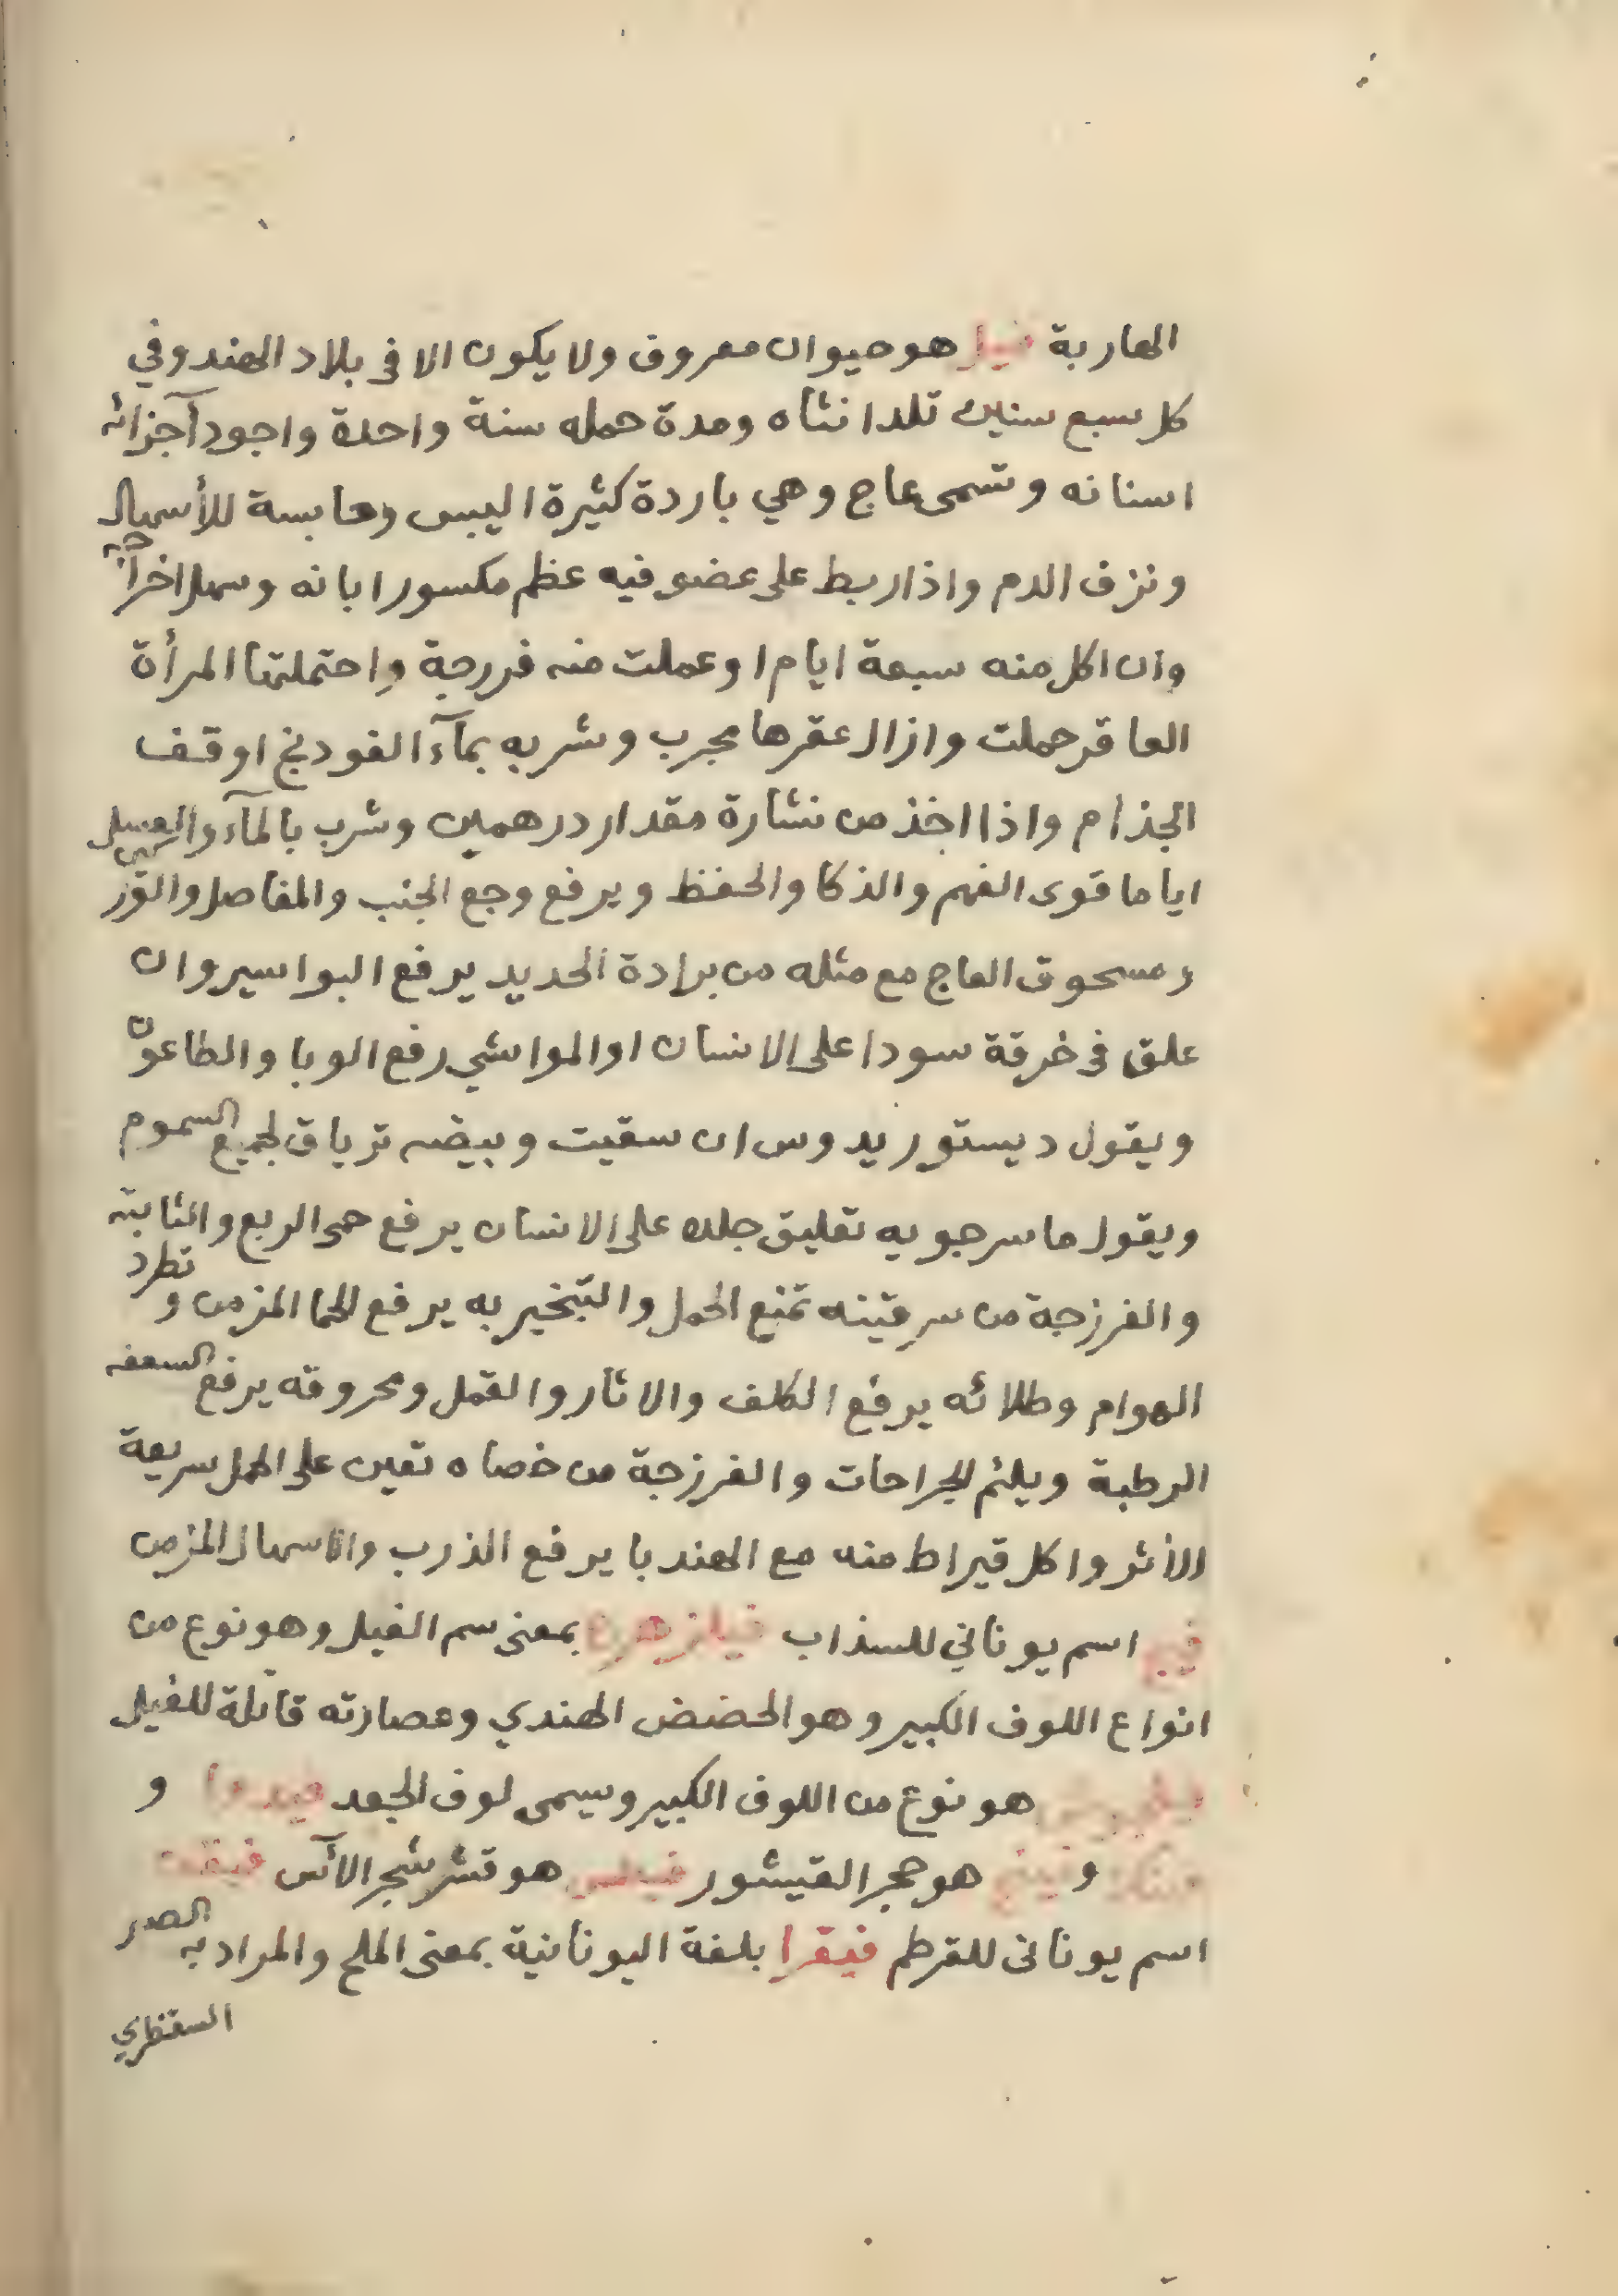 الهاربة فيل هو حيوان معروف ولا يكون الا فى بلاد الهند وفي
كل سبع سنين تلد انثاه ومدة حمله سنة واحدة واجود آجزائه
اسنانه وتسمى عاج وهي باردة كثيرة اليبس وحابسة للأسهال
ونزف الدم واذا ربط على عضو فيه عظم مكسور ابانه وسهل اخراجه
وان اكل منه سبعة ايام او عملت منه فررجة واحتملتها المرأة
العاقر حملت وازال عقرها مجرب وشربه بمآء الفودنج اوقف
الجذام واذا اخذ من نشارة مقدار درهمين وشرب بالمآء والعسل
اياما قوى الفهم والذكا والحفظ ويرفع وجع الجنب والمفاصل والور
ومسحوق العاج مع مثله من برادة الحديد يرفع البواسير وان
علق فى خرقة سودا على الانسان او المواشي رفع الوبا والطاعون
ويقول ديستوريدوس ان سقيت وبيضه ترياق لجميع السموم
ويقول ماسرجويه تعليق جلده على الانسان يرفع حمى الربع والثابته
والفرزجة من سرقينه تمنع الحمل والتبخير به يرفع الحما المزمن وتطرد
الهوام وطلائه يرفع الكلف والاثار والقمل ومحروقه يرفع السعفه
الرطبة ويلئم الجراحات والفرزجة من خصاه تعين على الحمل سريعة
الأثر واكل قيراط منه مع الهندبا يرفع الذرب والاسهال المزمن
اسم يوناني للسذاب فيلزهره بمعنى سم الفيل وهو نوع من
انواع اللوف الكبير وهو الحضض الهندي وعصارته قاتلة للفيل
هو نوع من اللوف الكبير ويسمى لوف الجعد و
و هو حجر القيشور هو قشر شجر الآس
اسم يونانى للقرطم فيقرا بلغة اليونانية بمعنى الملح والمراد به الصبر
السقطري